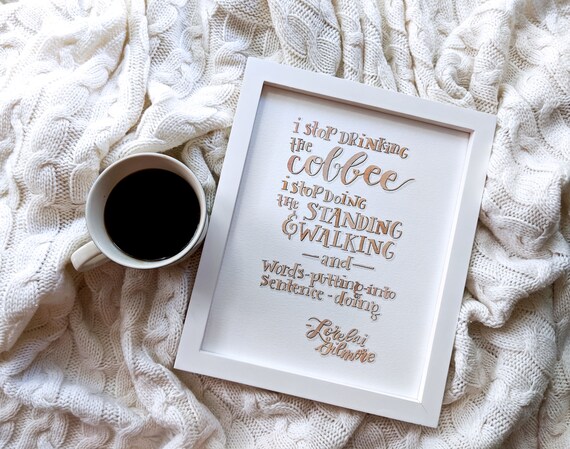 i STOP DRINKING
the
coffee
i STOP DOING
the STANDING
& WALKING
— and —
Words-putting-into
Sentence-doing
-Lorelai
Gilmore